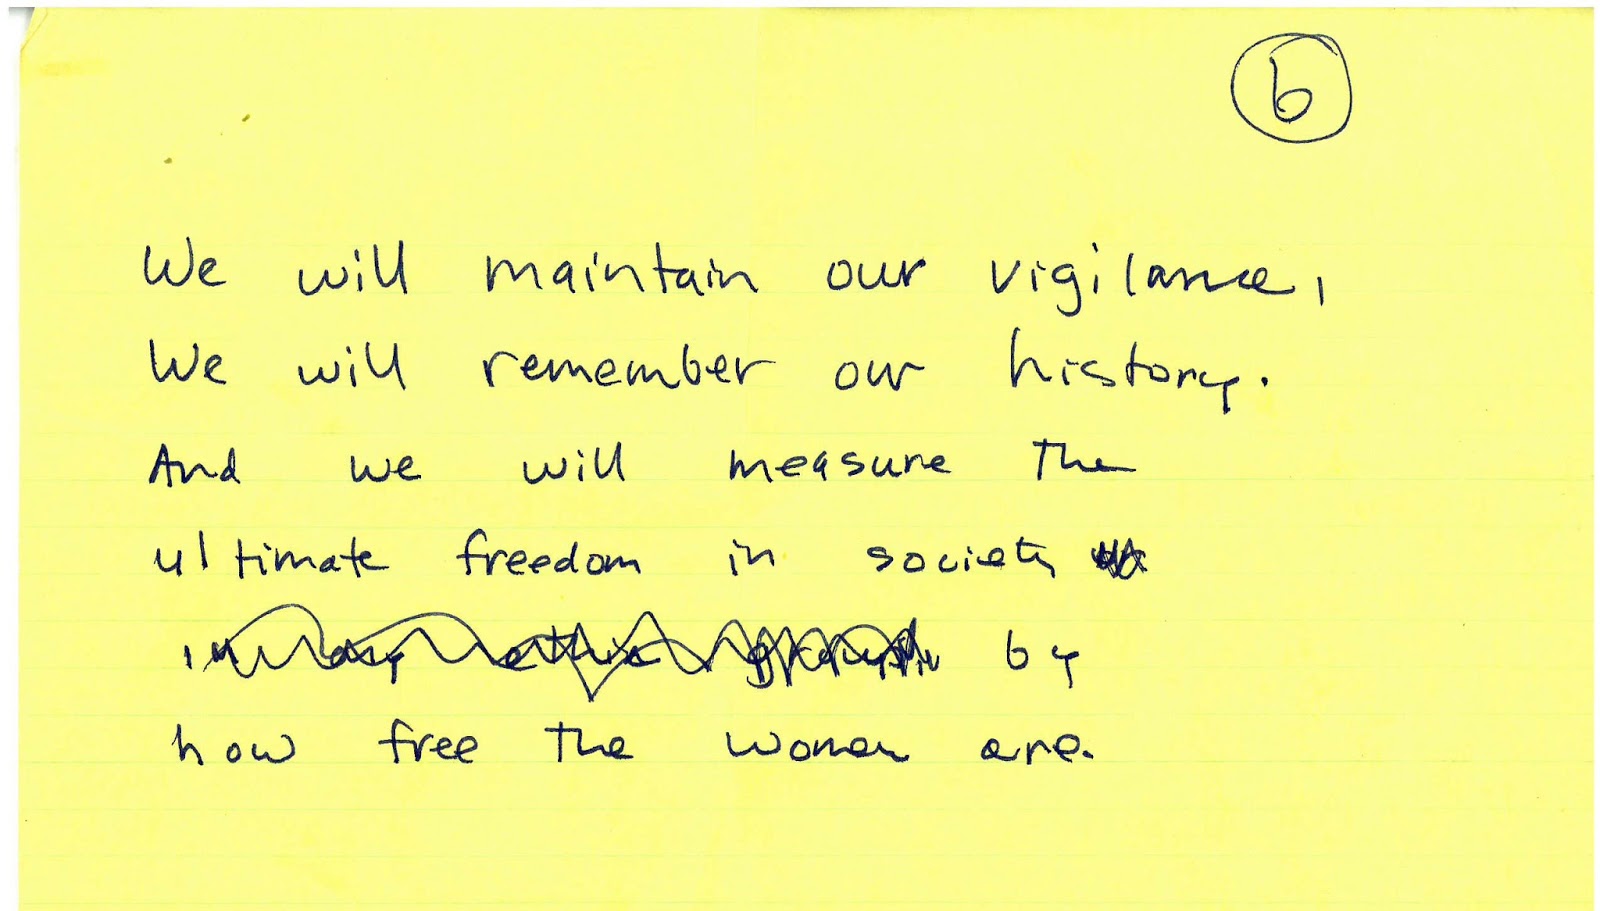 6
We will maintain our vigilance,
We will remember our history.
And we will measure the
ultimate freedom in society
in any ethnic group by
how free the women are.